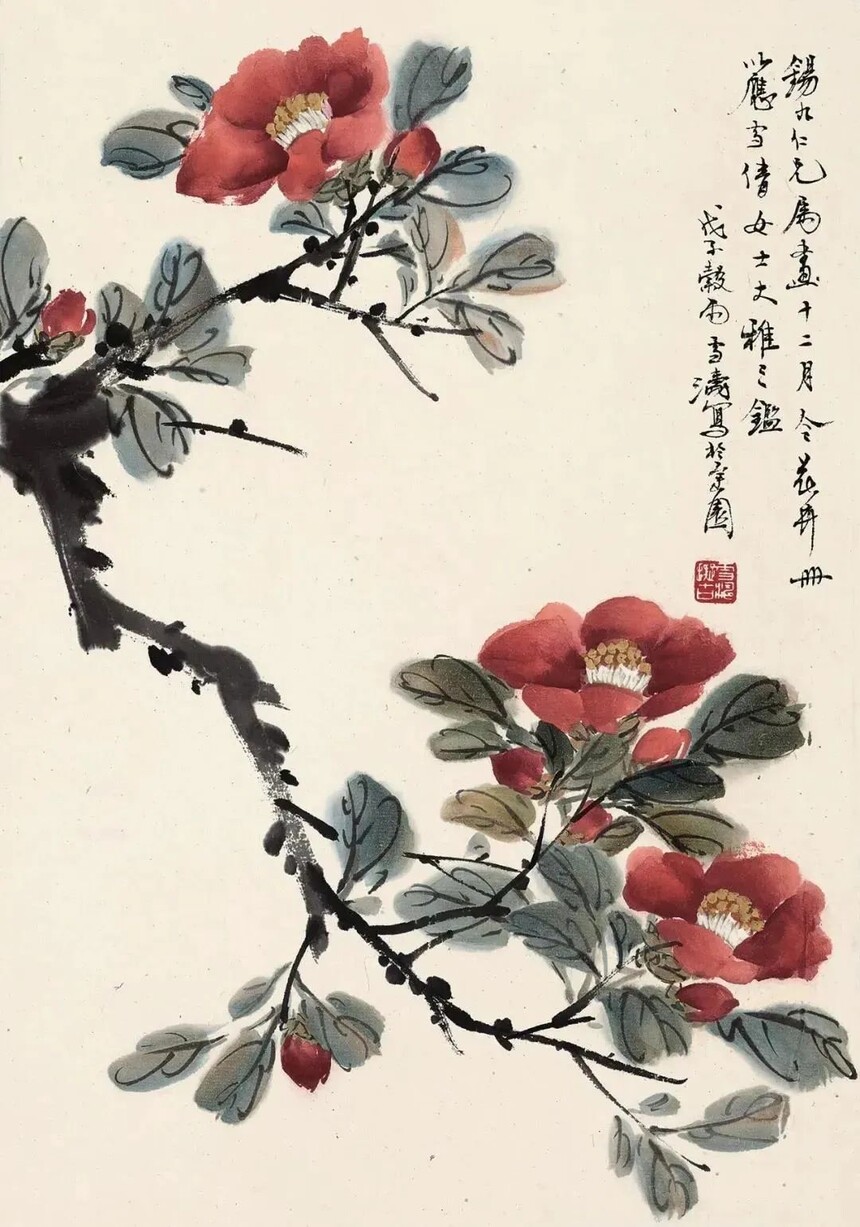 錫九仁兄属畫十二月令花卉冊
以應雪倩女士大雅之鑑
戊子穀雨雪濤寫於